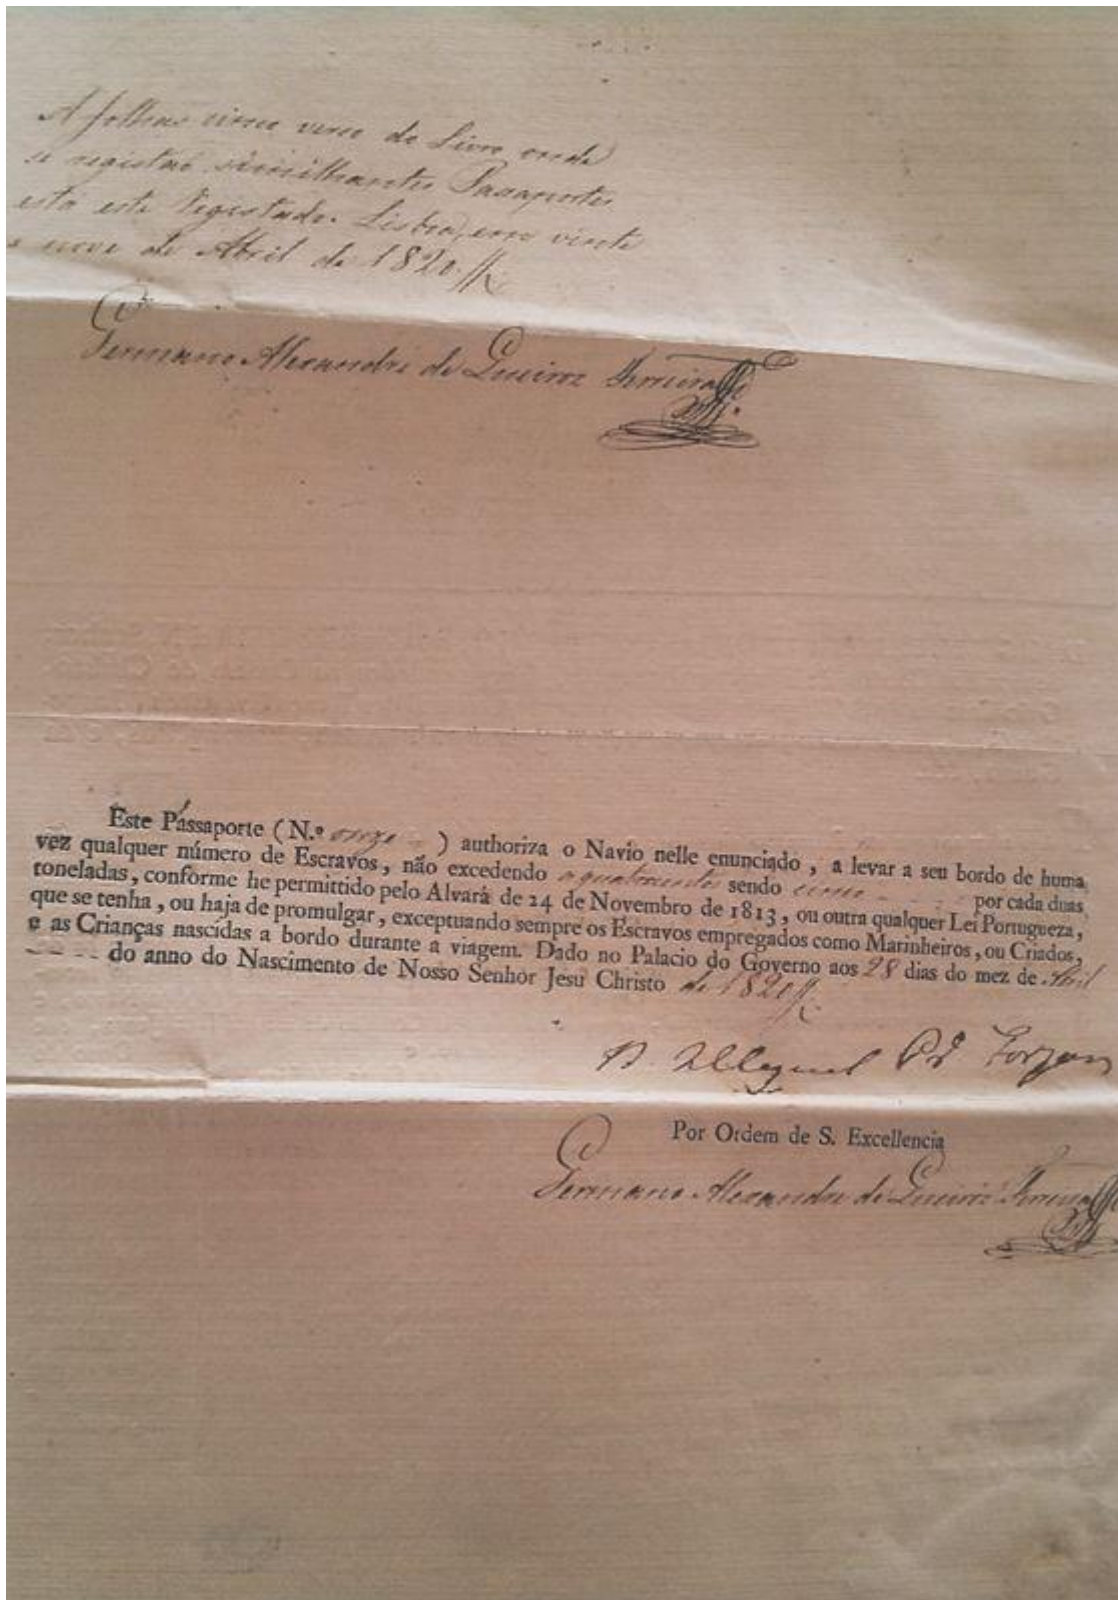 A folhas cinco verso do Livro onde
se registaõ similhantes Passaportes
está este registado. Lisboa, em vinte
e nove de Abril de 1820
Germano Alexandre de Queiroz Ferreira
Este Passaporte (N.º onze ) authoriza o Navio nelle enunciado, a levar a seu bordo de huma
vez qualquer número de Escravos, não excedendo a quatrocentos sendo cinco por cada duas
toneladas, conforme he permittido pelo Alvará de 24 de Novembro de 1813, ou outra qualquer Lei Portugueza,
que se tenha, ou haja de promulgar, exceptuando sempre os Escravos empregados como Marinheiros, ou Criados,
e as Crianças nascidas a bordo durante a viagem. Dado no Palacio do Governo aos 28 dias do mez de Abril
do anno do Nascimento de Nosso Senhor Jesu Christo de 1820
D. Miguel Forjaz
Por Ordem de S. Excellencia
Germano Alexandre de Queiroz Ferreira